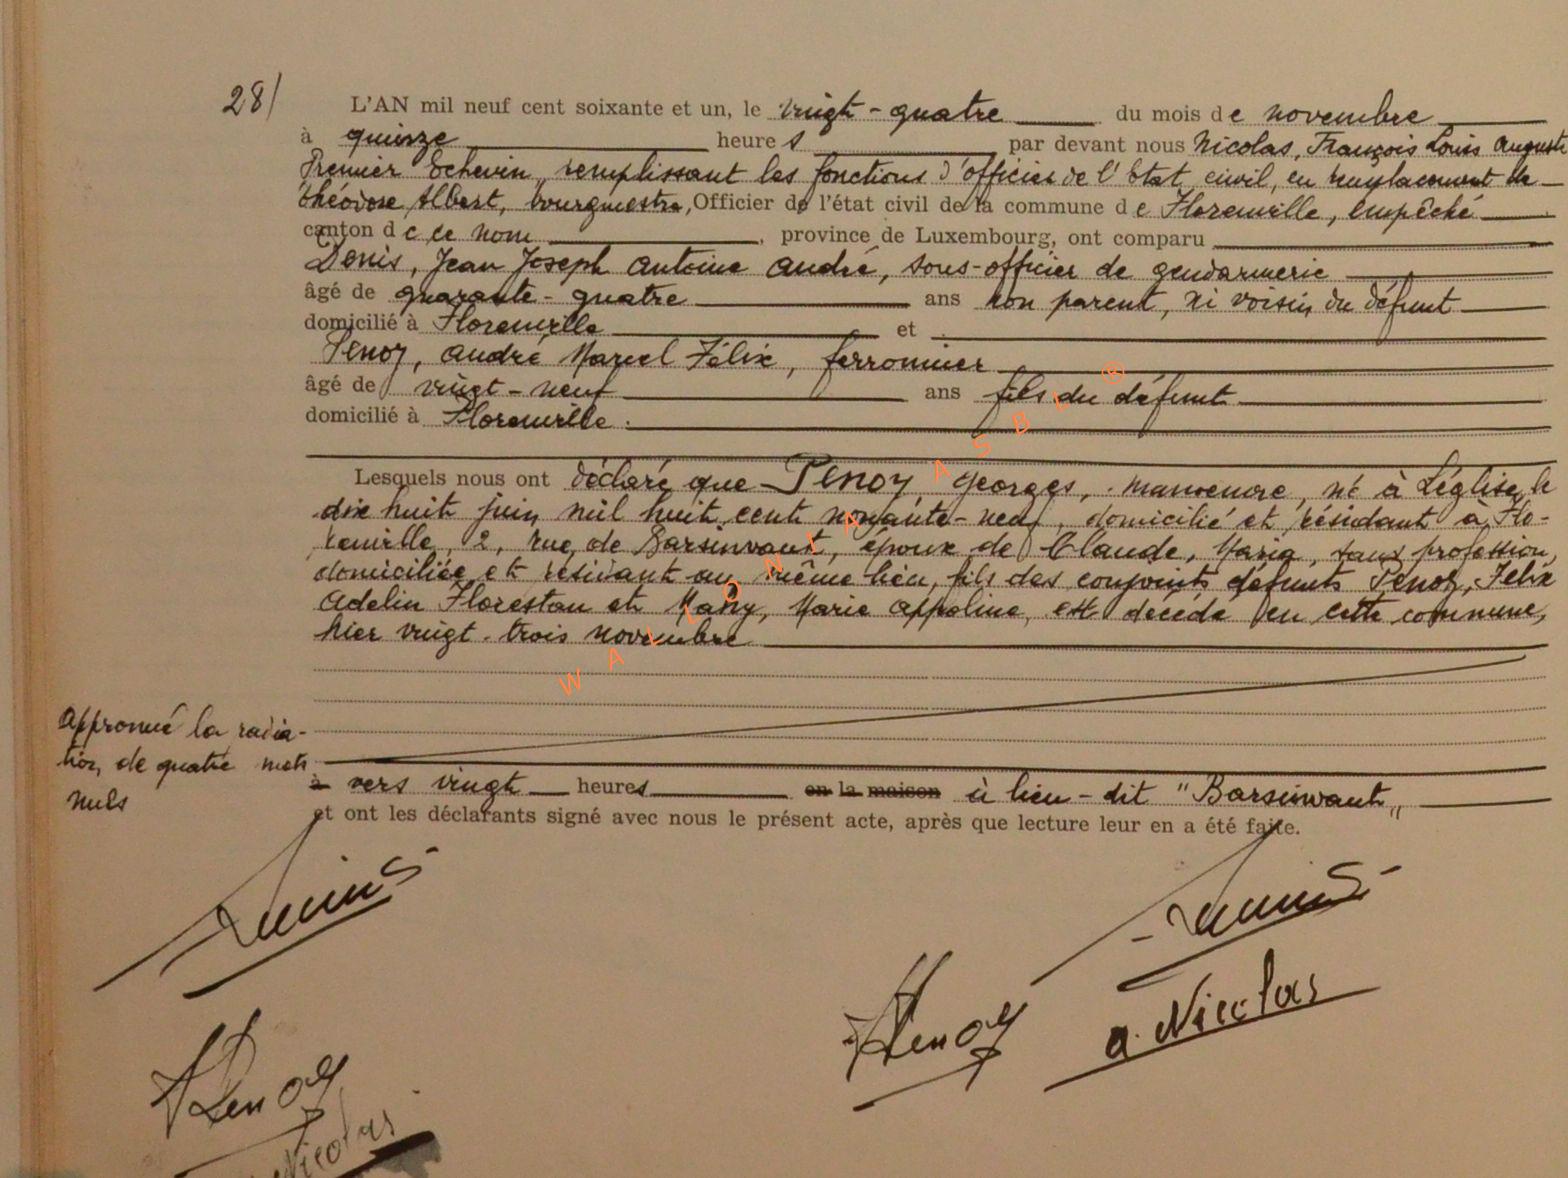 28/
L'AN mil neuf cent soixante et un, le vingt-quatre du mois de novembre
à quinze heures par devant nous Nicolas, François Louis Auguste
Premier Echevin, remplissant les fonctions d'officier de l'Etat civil, en remplacement de
Théodore Albert, bourgmestre, Officier de l'état civil de la commune de Florenville, empêché
canton de ce nom, province de Luxembourg, ont comparu
Denis, Jean Joseph Antoine André, sous-officier de gendarmerie
âgé de quarante-quatre ans non parent, ni voisin du défunt
domicilié à Florenville et
Penoy, André Marcel Félix, ferronnier
âgé de vingt-neuf ans fils du défunt
domicilié à Florenville.
Lesquels nous ont déclaré que Penoy, Georges, manoeuvre, né à Léglise, le
dix huit juin mil huit cent nonante-neuf, domicilié et résidant à Flo-
renville, 2, rue de Barsinvaut, époux de Claude, Maria, sans profession,
domiciliée et résidant au même lieu, fils des conjoints défunts Penoy, Félix
Adelin Florestan et Mahy, Marie Appoline, est décédé en cette commune,
hier vingt-trois novembre
Approuvé la radia-
tion de quatre mots
nuls
à vers vingt heures en la maison à lieu-dit "Barsinvaut"
et ont les déclarants signé avec nous le présent acte, après que lecture leur en a été faite.
Denis
Denis
Penoy
a. Nicolas
Penoy
Nicolas
WALLONIA ASBL ®